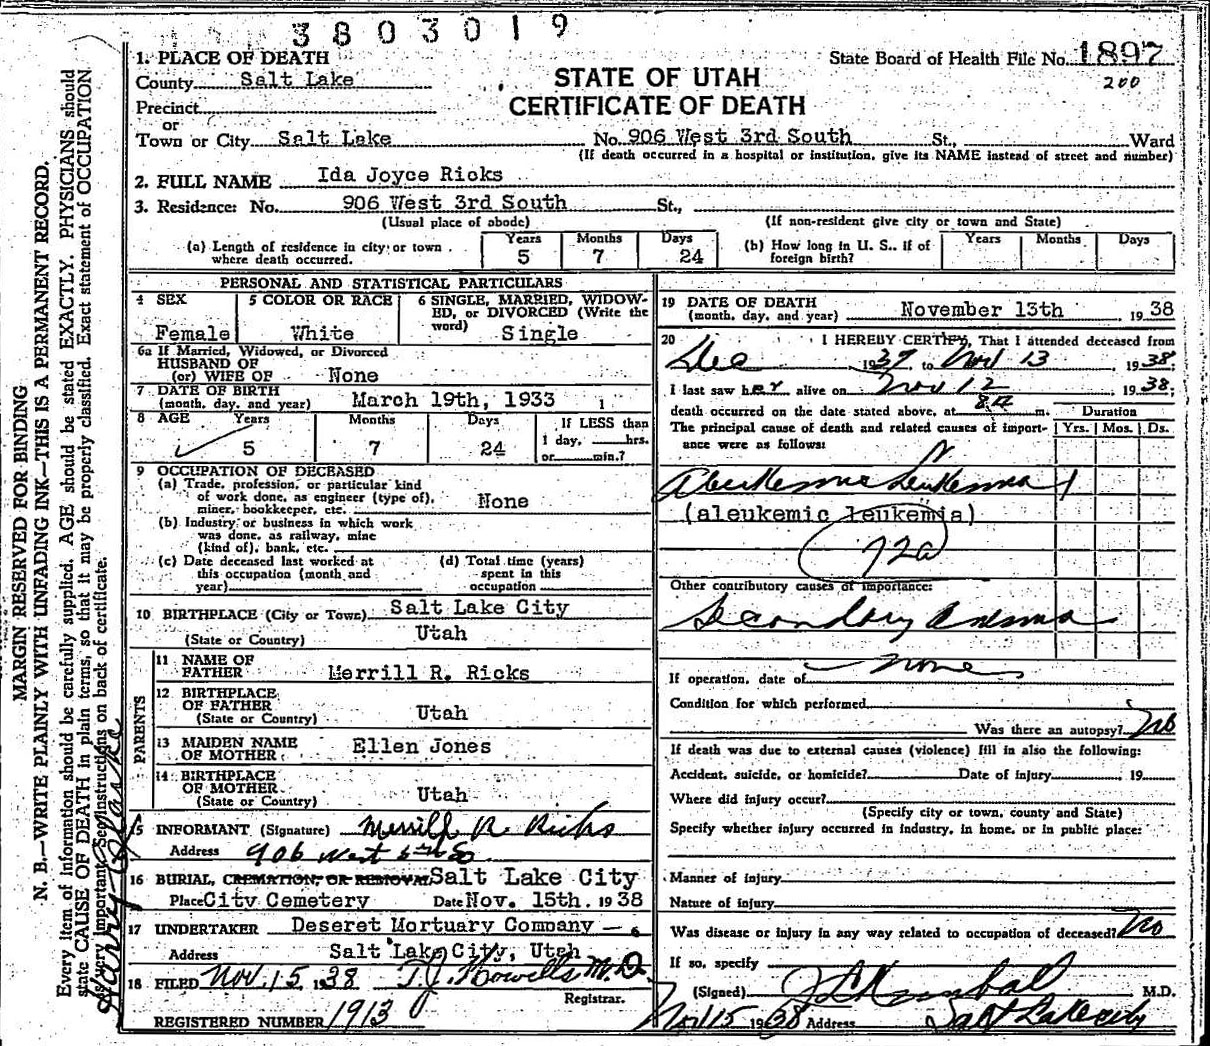 3803019
1. PLACE OF DEATH
State Board of Health File No. 1897
County Salt Lake
STATE OF UTAH
200
Precinct
CERTIFICATE OF DEATH
or
Town or City Salt Lake No. 906 West 3rd South St., Ward
(If death occurred in a hospital or institution, give its NAME instead of street and number)
2. FULL NAME Ida Joyce Ricks
3. Residence: No. 906 West 3rd South St.,
(Usual place of abode) (If non-resident give city or town and State)
(a) Length of residence in city or town where death occurred. Years 5 Months 7 Days 24
(b) How long in U. S., if of foreign birth? Years Months Days
PERSONAL AND STATISTICAL PARTICULARS
4 SEX Female
5 COLOR OR RACE White
6 SINGLE, MARRIED, WIDOWED, or DIVORCED (Write the word) Single
6a If Married, Widowed, or Divorced
HUSBAND OF
(or) WIFE OF None
7 DATE OF BIRTH
(month, day, and year) March 19th, 1933
8 AGE Years 5 Months 7 Days 24
If LESS than
1 day, hrs.
or min.?
9 OCCUPATION OF DECEASED
(a) Trade, profession, or particular kind
of work done, as engineer (type of),
miner, bookkeeper, etc. None
(b) Industry or business in which work
was done, as railway, mine
(kind of), bank, etc.
(c) Date deceased last worked at
this occupation (month and
year)
(d) Total time (years)
spent in this
occupation
10 BIRTHPLACE (City or Town) Salt Lake City
(State or Country) Utah
PARENTS
11 NAME OF
FATHER Merrill R. Ricks
12 BIRTHPLACE
OF FATHER
(State or Country) Utah
13 MAIDEN NAME
OF MOTHER Ellen Jones
14 BIRTHPLACE
OF MOTHER
(State or Country) Utah
15 INFORMANT (Signature) Merrill R. Ricks
Address 906 West So
16 BURIAL, CREMATION, OR REMOVAL Salt Lake City
Place City Cemetery Date Nov. 15th. 1938
17 UNDERTAKER Deseret Mortuary Company
Address Salt Lake City, Utah
18 FILED Nov. 15 1938 T.J. Howells M.D.
Registrar.
REGISTERED NUMBER 1913
19 DATE OF DEATH
(month, day, and year) November 13th 1938
20 I HEREBY CERTIFY, That I attended deceased from
Dec 1937, to Nov 13 1938
I last saw her alive on Nov 12 1938,
death occurred on the date stated above, at 8 a m.
Duration
The principal cause of death and related causes of importance were as follows:
Yrs. Mos. Ds.
Aleukemic Leukemia 1
(aleukemic leukemia)
72a
Other contributory causes of importance:
Secondary Anemia
If operation, date of none
Condition for which performed
Was there an autopsy? No
If death was due to external causes (violence) fill in also the following:
Accident, suicide, or homicide? Date of injury 19
Where did injury occur?
(Specify city or town, county and State)
Specify whether injury occurred in industry, in home, or in public place:
Manner of injury
Nature of injury
Was disease or injury in any way related to occupation of deceased? No
If so, specify
(Signed) Kimball M.D.
Nov 15 1938 Address Salt Lake City
MARGIN RESERVED FOR BINDING
N. B.—WRITE PLAINLY WITH UNFADING INK—THIS IS A PERMANENT RECORD.
Every item of information should be carefully supplied. AGE should be stated EXACTLY. PHYSICIANS should
state CAUSE OF DEATH in plain terms, so that it may be properly classified. Exact statement of OCCUPATION
is very important. See instructions on back of certificate.